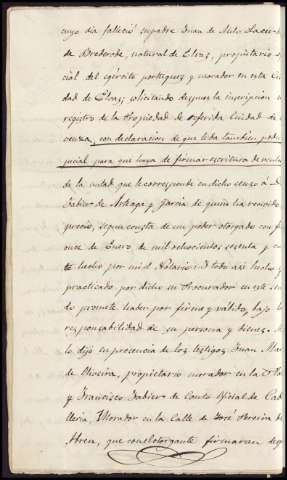 cuyo dia falleció su padre Juan de Mello Lacerda
de Brederode, natural de Elvas, propietario
cial del egército portugues y morador en esta ciu
dad de Elvas; solicitando despues la inscripcion
registro de la Propiedad de referida Ciudad de
con declaracion de que
judicial para que haya de firmar escritura de venta
de la mitad que le corresponde en dicho censo á
Xabier de Arteaga y Garcia de quien ha recivido
precio, segun consta de un poder otorgado con
once de Enero de mil ochocientos sesenta y
te hecho por mi el Notario: Y todo asi hecho
practicado por dicho su Procurador en este
do promete haber por firme y válido, bajo la
responsabilidad de su persona y bienes. A
lo dijo en presencia de los testigos Juan
de Oliveira, propietario morador en la
y Francisco Xabier de Couto Oficial de Cab
lleria, Morador en la Calle de José Pereira de
Abreu, que con el otorgante firmaran